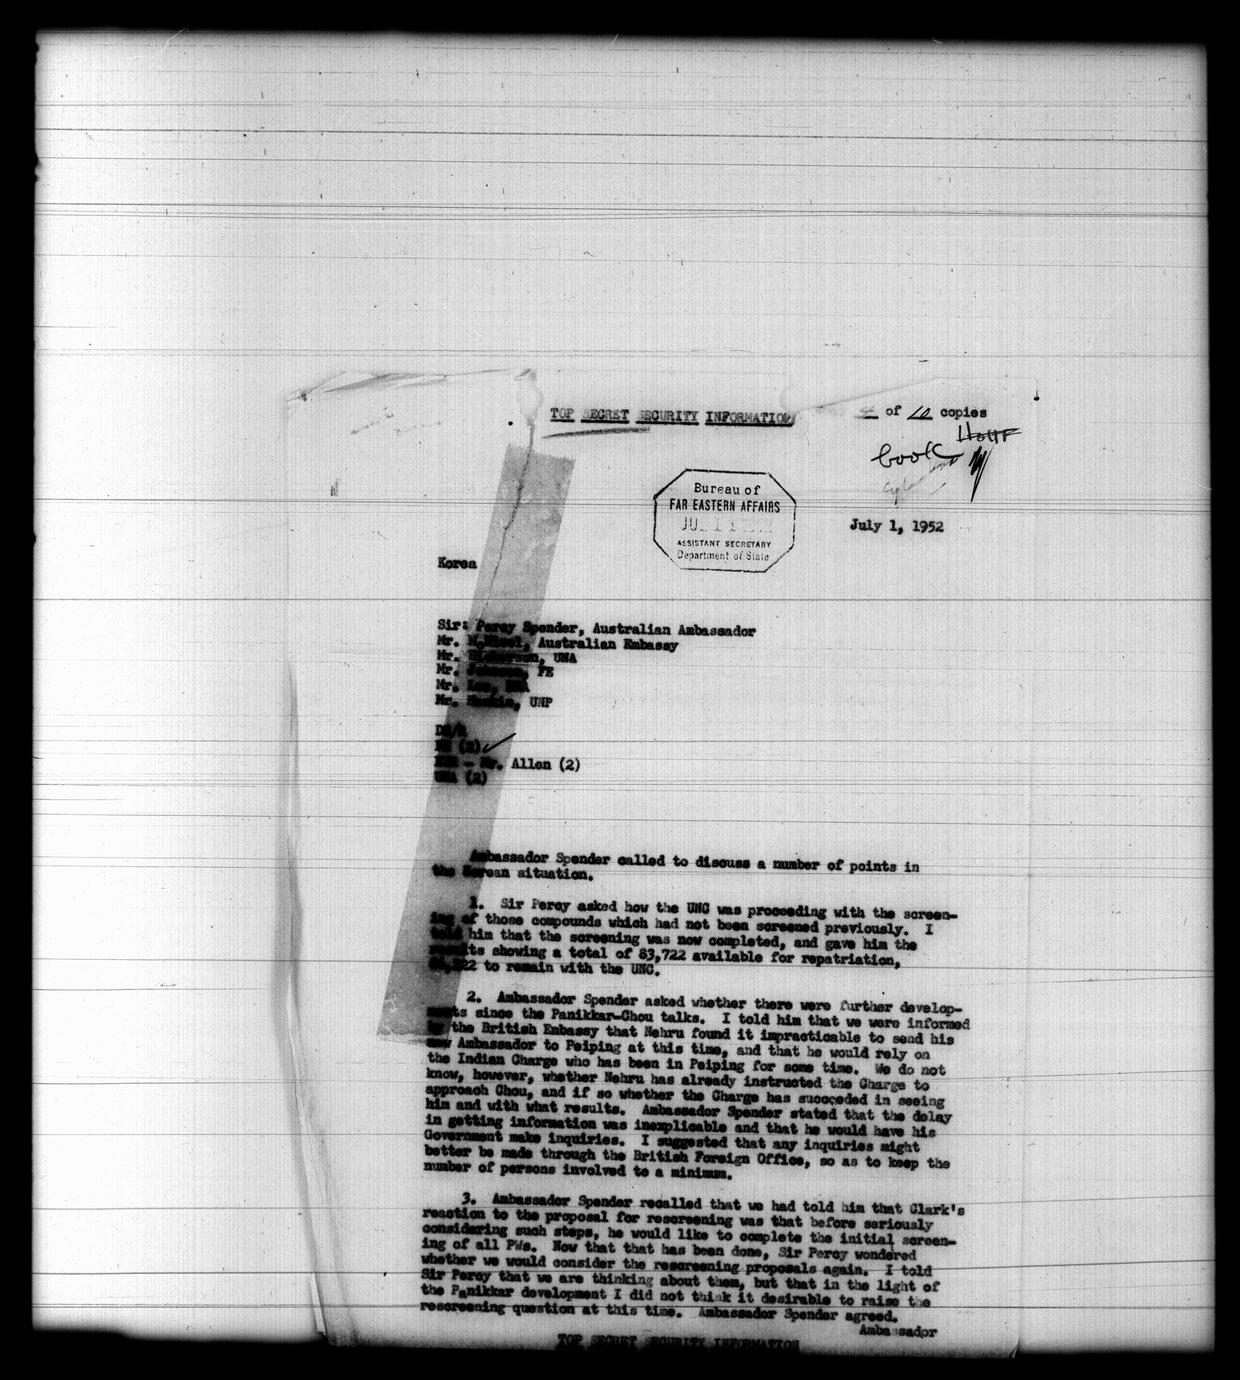 TOP SECRET SECURITY INFORMATION
4 of 10 copies
book
Bureau of
FAR EASTERN AFFAIRS
ASSISTANT SECRETARY
Department of State
July 1, 1952
Korea
Sir: Percy Spender, Australian Ambassador
Mr. Australian Embassy
Mr. UNA
Mr. FE
Mr.
Mr. UNP
(2)
Mr. Allen (2)
UNA (2)
Ambassador Spender called to discuss a number of points in
the Korean situation.
1. Sir Percy asked how the UNC was proceeding with the screen-
ing of those compounds which had not been screened previously. I
told him that the screening was now completed, and gave him the
results showing a total of 83,722 available for repatriation,
to remain with the UNC.
2. Ambassador Spender asked whether there were further develop-
ments since the Panikkar-Chou talks. I told him that we were informed
by the British Embassy that Nehru found it impracticable to send his
new Ambassador to Peiping at this time, and that he would rely on
the Indian Charge who has been in Peiping for some time. We do not
know, however, whether Nehru has already instructed the Charge to
approach Chou, and if so whether the Charge has succeeded in seeing
him and with what results. Ambassador Spender stated that the delay
in getting information was inexplicable and that he would have his
Government make inquiries. I suggested that any inquiries might
better be made through the British Foreign Office, so as to keep the
number of persons involved to a minimum.
3. Ambassador Spender recalled that we had told him that Clark's
reaction to the proposal for rescreening was that before seriously
considering such steps, he would like to complete the initial screen-
ing of all PWs. Now that that has been done, Sir Percy wondered
whether we would consider the rescreening proposals again. I told
Sir Percy that we are thinking about them, but that in the light of
the Panikkar development I did not think it desirable to raise the
rescreening question at this time. Ambassador Spender agreed.
Ambassador
TOP SECRET SECURITY INFORMATION